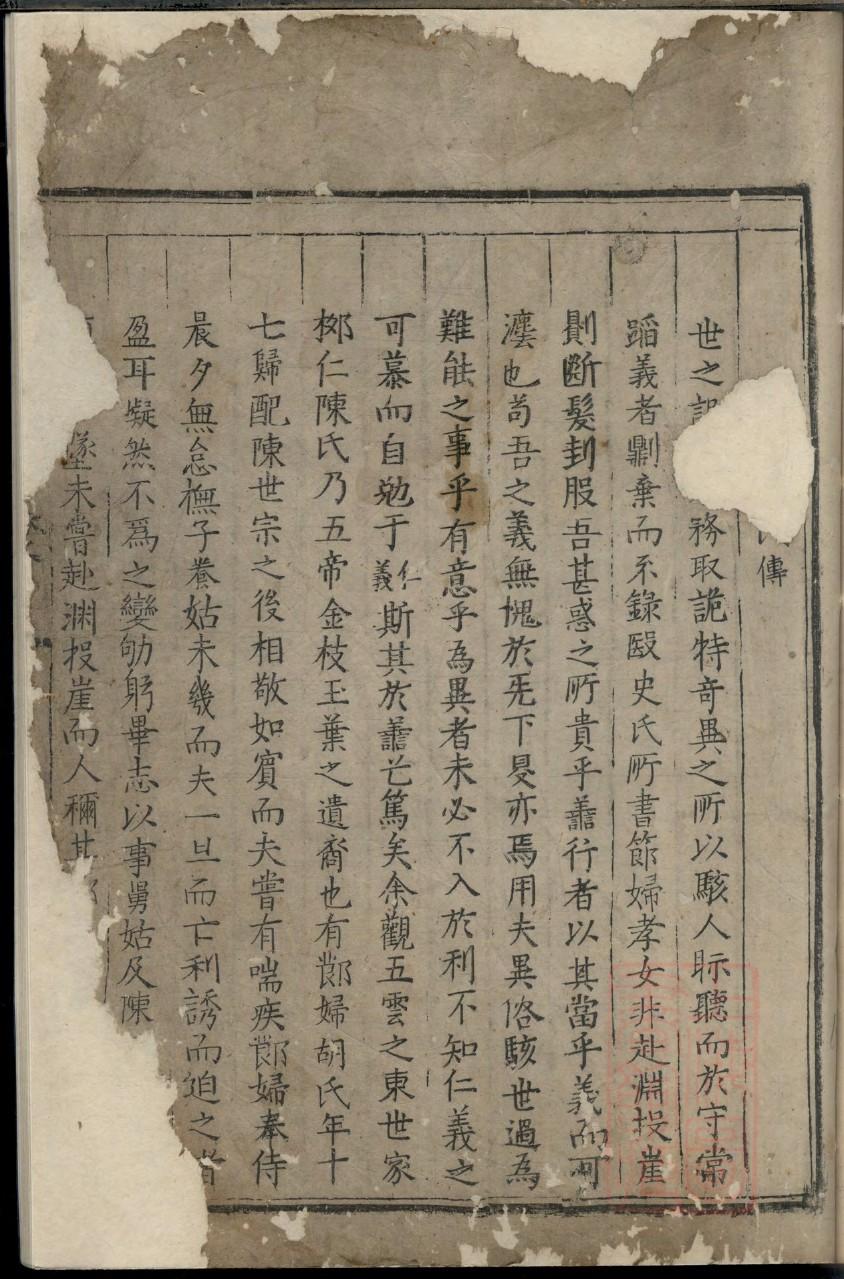 傳
世之 務取詭特奇異之所以駭人眎聽而於守常
蹈義者劘棄而不錄歐史氏所書節婦孝女非赴淵投崖
則斷髮刲股吾甚惑之所貴乎善行者以其當乎義而可
灋也苟吾之義無愧於兂下是亦焉用夫異俗駭世過爲
難能之事乎有意乎為異者未必不入於利不知仁義之
可慕而自勉于仁義斯其於善也篤矣余觀五雲之東世家
梛仁陳氏乃五帝金枝玉葉之遺裔也有節婦胡氏年十
七歸配陳世宗之後相敬如賓而夫嘗有喘疾節婦奉侍
晨夕無怠撫子養姑未幾而夫一旦而亡利誘而迫之者
盈耳凝然不爲之變劬躬畢志以事舅姑及陳
墜未嘗赴渊投崖而人稱其